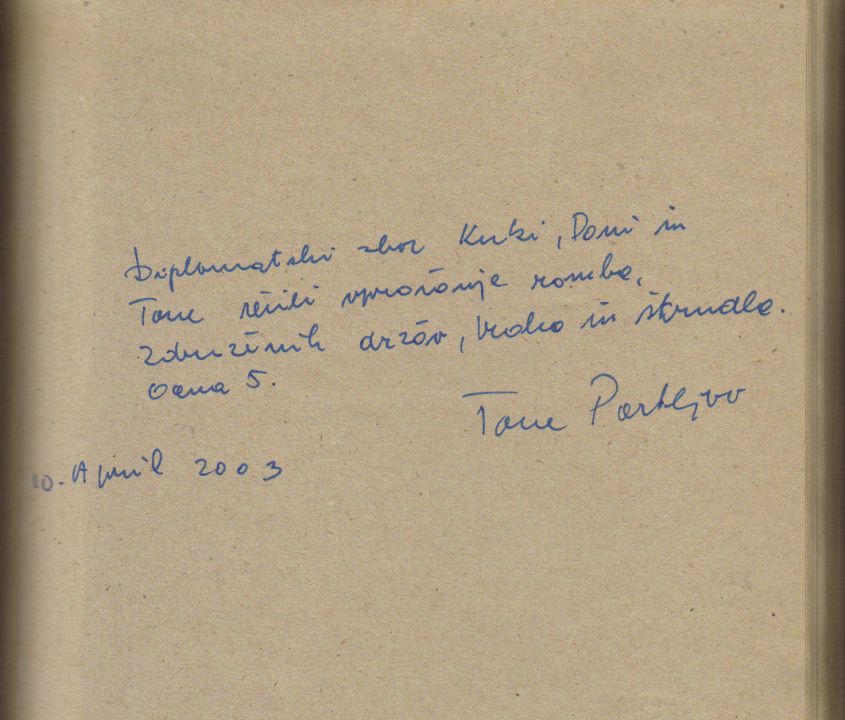 Diplomatski zbor Kuki, Doni in
Tone rešili vprašanje romba,
Združenih držav, in štrudla.
Ocena 5.
Tone Partljič
10. April 2003